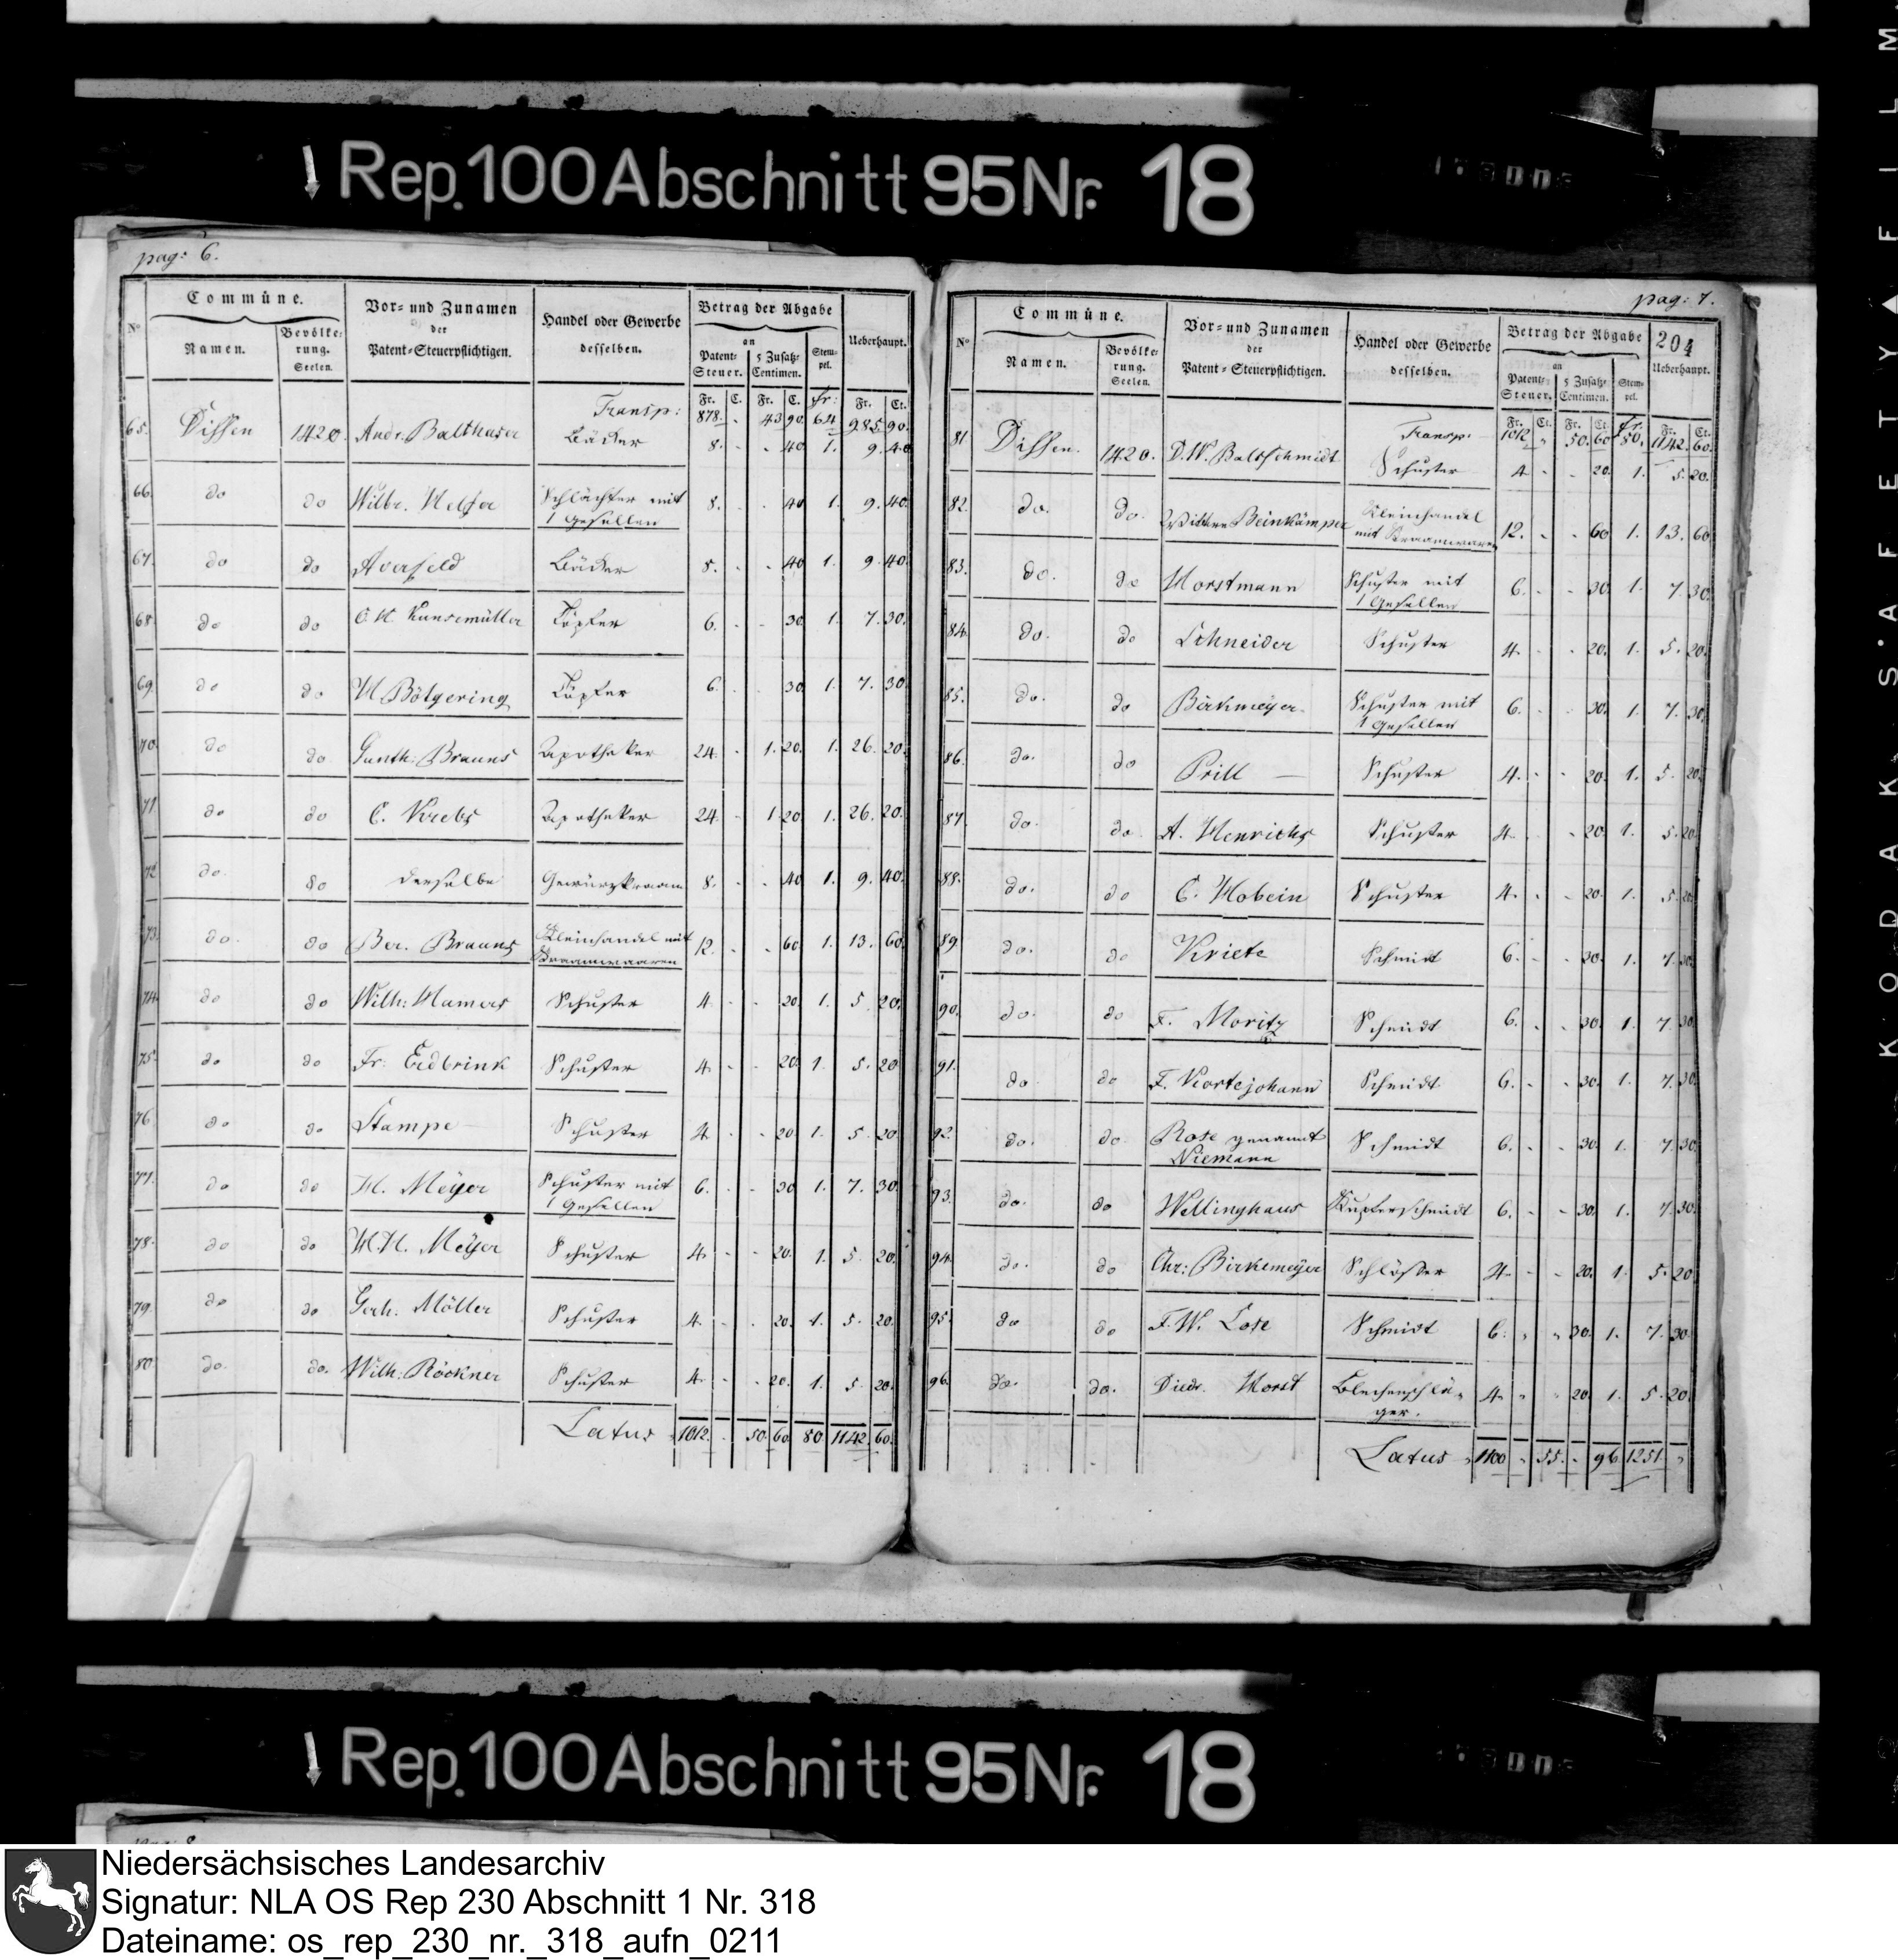 Rep. 100 Abschnitt 95 Nr. 18
pag: 6.
No Commüne. Vor- und Zunamen der Patent-Steuerpflichtigen. Handel oder Gewerbe desselben. Betrag der Abgabe Ueberhaupt.
Namen. Bevölkerung. Seelen. an Patent-Steuer. 5 Zusatz-Centimen. Stempel.
Fr. C. Fr. C. Fr: Fr. Ct.
Transp: 878. - 43 90. 64 985 90.
65. Dissen 1420. Andr. Balthaser Bäcker 8. - - 40 1. 9. 40
66. do do Wilbr. Helfer Schlächter mit 1 Gesellen 8. - - 40 1. 9. 40.
67. do do Averfeld Bäcker 8. - - 40 1. 9 40.
68. do do C. H. Kunsemüller Töpfer 6. - - 30 1. 7. 30.
69. do do H. Bölgering Töpfer 6. - - 30 1. 7. 30.
70. do do Gunth: Brauns Apotheker 24. - 1. 20. 1. 26. 20.
71 do do C. Krebs Apotheker 24. - 1 20 1. 26. 20.
72 do. do derselbe Gewürzkraam 8. - - 40 1. 9. 40.
73. do. do Ber. Brauns Kleinhandel mit Kraamwaaren 12. - - 60 1. 13. 60.
74. do do Wilh: Hamers Schuster 4 - - 20 1. 5 20.
75. do do Fr. Eidbrink Schuster 4. - - 20 1. 5. 20
76. do do Stampe Schuster 4. - - 20 1. 5. 20
77. do do H. Meÿer Schuster mit 1 Gesellen 6. - - 30 1. 7. 30.
78. do do H. H. Meÿer Schuster 4. - - 20. 1. 5. 20.
79. do do Gerh. Möller Schuster 4. - - 20. 1. 5. 20.
80. do. do. Wilh: Röckner Schuster 4. - - 20. 1. 5. 20.
Latus 1012. - 50. 60. 80. 1142. 60.
pag: 7.
204
No Commüne. Vor- und Zunamen der Patent-Steuerpflichtigen. Handel oder Gewerbe desselben. Betrag der Abgabe Ueberhaupt.
Namen. Bevölkerung. Seelen. an Patent-Steuer. 5 Zusatz-Centimen. Stempel.
Fr. Ct. Fr. Ct. Fr. Fr. Ct.
Transp: 1012 " 50. 60 80. 1142. 60.
81 Dissen. 1420. D. W. Baltschmidt Schuster 4 - - 20. 1. 5. 20.
82. do. do. Wittwe Beinkämper Kleinhandel mit Kraamwaaren 12. - - 60 1. 13. 60
83. do. do Horstmann Schuster mit 1 Gesellen 6. - - 30. 1. 7. 30.
84. do. do Schneider Schuster 4. - - 20. 1. 5. 20.
85. do. do Birkmeÿer Schuster mit 1 Gesellen 6. - - 30. 1. 7. 30.
86. do. do Prill — Schuster 4. - - 20. 1. 5. 20.
87. do. do. A. Henrichs Schuster 4. - - 20. 1. 5. 20.
88. do. do C. Hobein Schuster 4. - - 20. 1. 5. 20.
89. do. do Kriete Schmidt 6. - - 30. 1. 7. 30.
90. do. do F. Moritz Schmidt 6. - - 30. 1. 7. 30.
91. do do F. Kortejohann Schmidt 6. - - 30. 1. 7. 30.
92. do. do Rose genannt Niemann Schmidt 6. - - 30. 1. 7. 30.
93. do. do Wellinghaus Kupferschmidt 6. - - 30. 1. 7. 30.
94. do. do Chr: Birkemeÿer Schlößer 4. - - 20. 1. 5. 20
95. do do F. W. Lose Schmidt 6. " " 30. 1. 7. 30.
96. do. do. Diedr. Horst Blechenschläger. 4. " " 20. 1. 5. 20.
Latus 1100 " 55. - 96 1251. "
KODAK SAFETY FILM
Rep. 100 Abschnitt 95 Nr. 18
Niedersächsisches Landesarchiv
Signatur: NLA OS Rep 230 Abschnitt 1 Nr. 318
Dateiname: os_rep_230_nr._318_aufn_0211